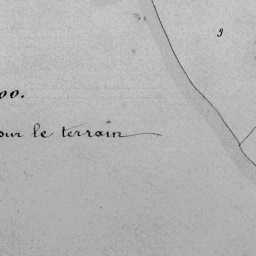 9
00.
our le terrain